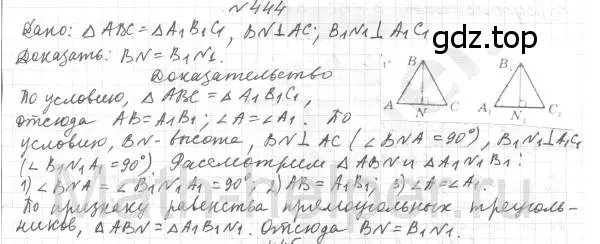 № 444
gdz.top
Дано: △ ABC = △ A1B1C1, BN⊥AC; B1N1⊥A1C1
Доказать: BN = B1N1.
Доказательство
По условию, △ ABC = △ A1B1C1,
отсюда AB = A1B1; ∠A = ∠A1. По
условию, BN - высота, BN⊥AC (∠BNA = 90°), B1N1⊥A1C1
(∠B1N1A1 = 90°). Рассмотрим △ ABN и △ A1N1B1:
1) ∠BNA = ∠B1N1A1 = 90°; 2) AB = A1B1; 3) ∠A = ∠A1.
По признаку равенства прямоугольных треуголь-
ников, △ABN = △A1B1N1. Отсюда BN = B1N1.
B
B1
A N C
A1 N1 C1